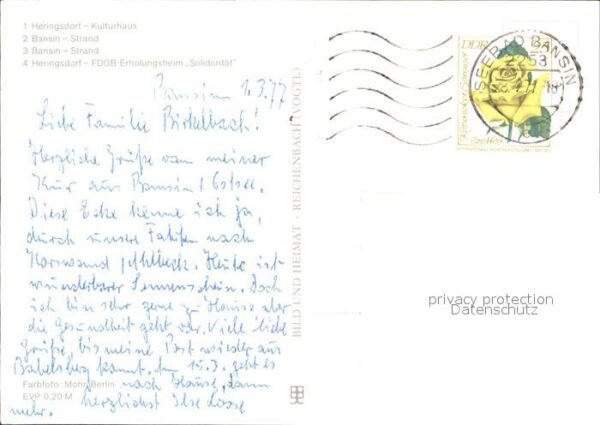 1 Heringsdorf – Kulturhaus
2 Bansin – Strand
3 Bansin – Strand
4 Heringsdorf – FDGB-Erholungsheim „Solidarität"
Bansin 1.3.77
Liebe Familie Birkelbach!
Herzliche Grüße von meiner
Kur aus Bansin / Ostsee.
Diese Ecke kenne ich ja,
durch unsere Fahrten nach
Ahlbeck. Heute ist
wunderbarer Sonnenschein. Doch
ich bin sehr gerne zu Hause aber
die Gesundheit geht vor. Viele liebe
Grüße, bis meine Post wieder aus
Babelsberg kommt. Am 15.3. geht es
nach Hause, dann
mehr. Herzlichst Ilse
Farbfoto: Mohr, Berlin
EVP 0,20 M
BILD UND HEIMAT · REICHENBACH (VOGTL)
DDR
SEEBAD BANSIN
2253
privacy protection
Datenschutz